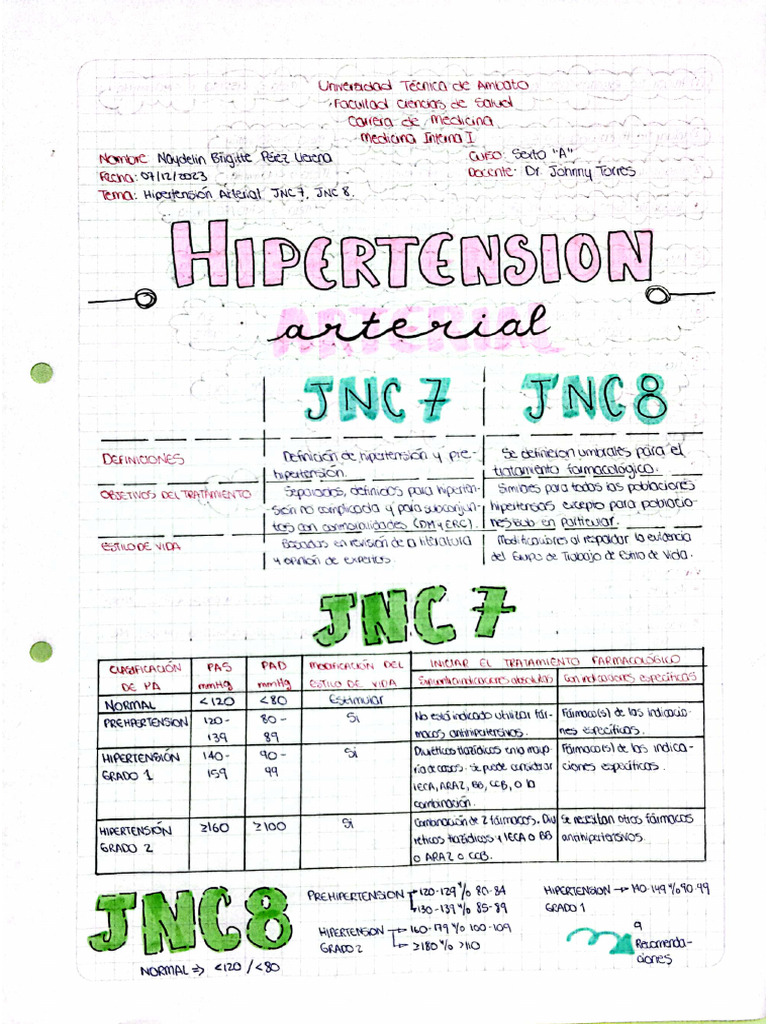 Universidad Técnica de Ambato
Facultad Ciencias de Salud
Carrera de Medicina
Medicina Interna I
Nombre: Naydelin Brigitte Pérez Curso: Sexto "A"
Fecha: 07/12/2023 Docente: Dr. Johnny Torres
Tema: Hipertensión Arterial JNC 7, JNC 8.
HIPERTENSION
arterial
ARTERIAL
JNC 7 JNC 8
DEFINICIONES
Definición de hipertensión y pre-
hipertensión.
Se definieron umbrales para el
tratamiento farmacológico.
OBJETIVOS DEL TRATAMIENTO
Separados, definidos para hiperten-
sión no complicada y para subconjun-
tos con comorbilidades (DM y ERC).
Similares para todas las poblaciones
hipertensas excepto para poblacio-
nes sub en particular.
ESTILO DE VIDA
Basadas en revisión de la literatura
y opinión de expertos.
Modificaciones al respaldar la evidencia
del Grupo de Trabajo de Estilo de Vida.
JNC 7
CLASIFICACIÓN
DE PA
PAS
mmHg
PAD
mmHg
MODIFICACIÓN DEL
ESTILO DE VIDA
INICIAR EL TRATAMIENTO FARMACOLÓGICO
Sin contraindicaciones absolutas
Con indicaciones específicas
NORMAL <120 <80 Estimular
PREHIPERTENSION
120-
139
80-
89
Si
No está indicado utilizar fár-
macos antihipertensivos.
Fármaco(s) de las indicacio-
nes específicas.
HIPERTENSIÓN
GRADO 1
140-
159
90-
99
Si
Diuréticos tiazídicos en la mayo-
ría de casos. Se puede considerar
IECA, ARA2, BB, CCB, o la
combinación.
Fármaco(s) de las indica-
ciones específicas.
HIPERTENSIÓN
GRADO 2
≥160
≥100
Si
Combinación de 2 fármacos. Diu
réticos tiazídicos y IECA o BB
o ARA2 o CCB.
Se necesitan otros fármacos
antihipertensivos.
JNC8
NORMAL ⇒ <120 / <80
PREHIPERTENSION 120-129 % 80-84
130-139 % 85-89
HIPERTENSION
GRADO 2
160-179 % 100-109
≥180 % >110
HIPERTENSION → 140-149 % 90-99
GRADO 1
9
Recomenda-
ciones